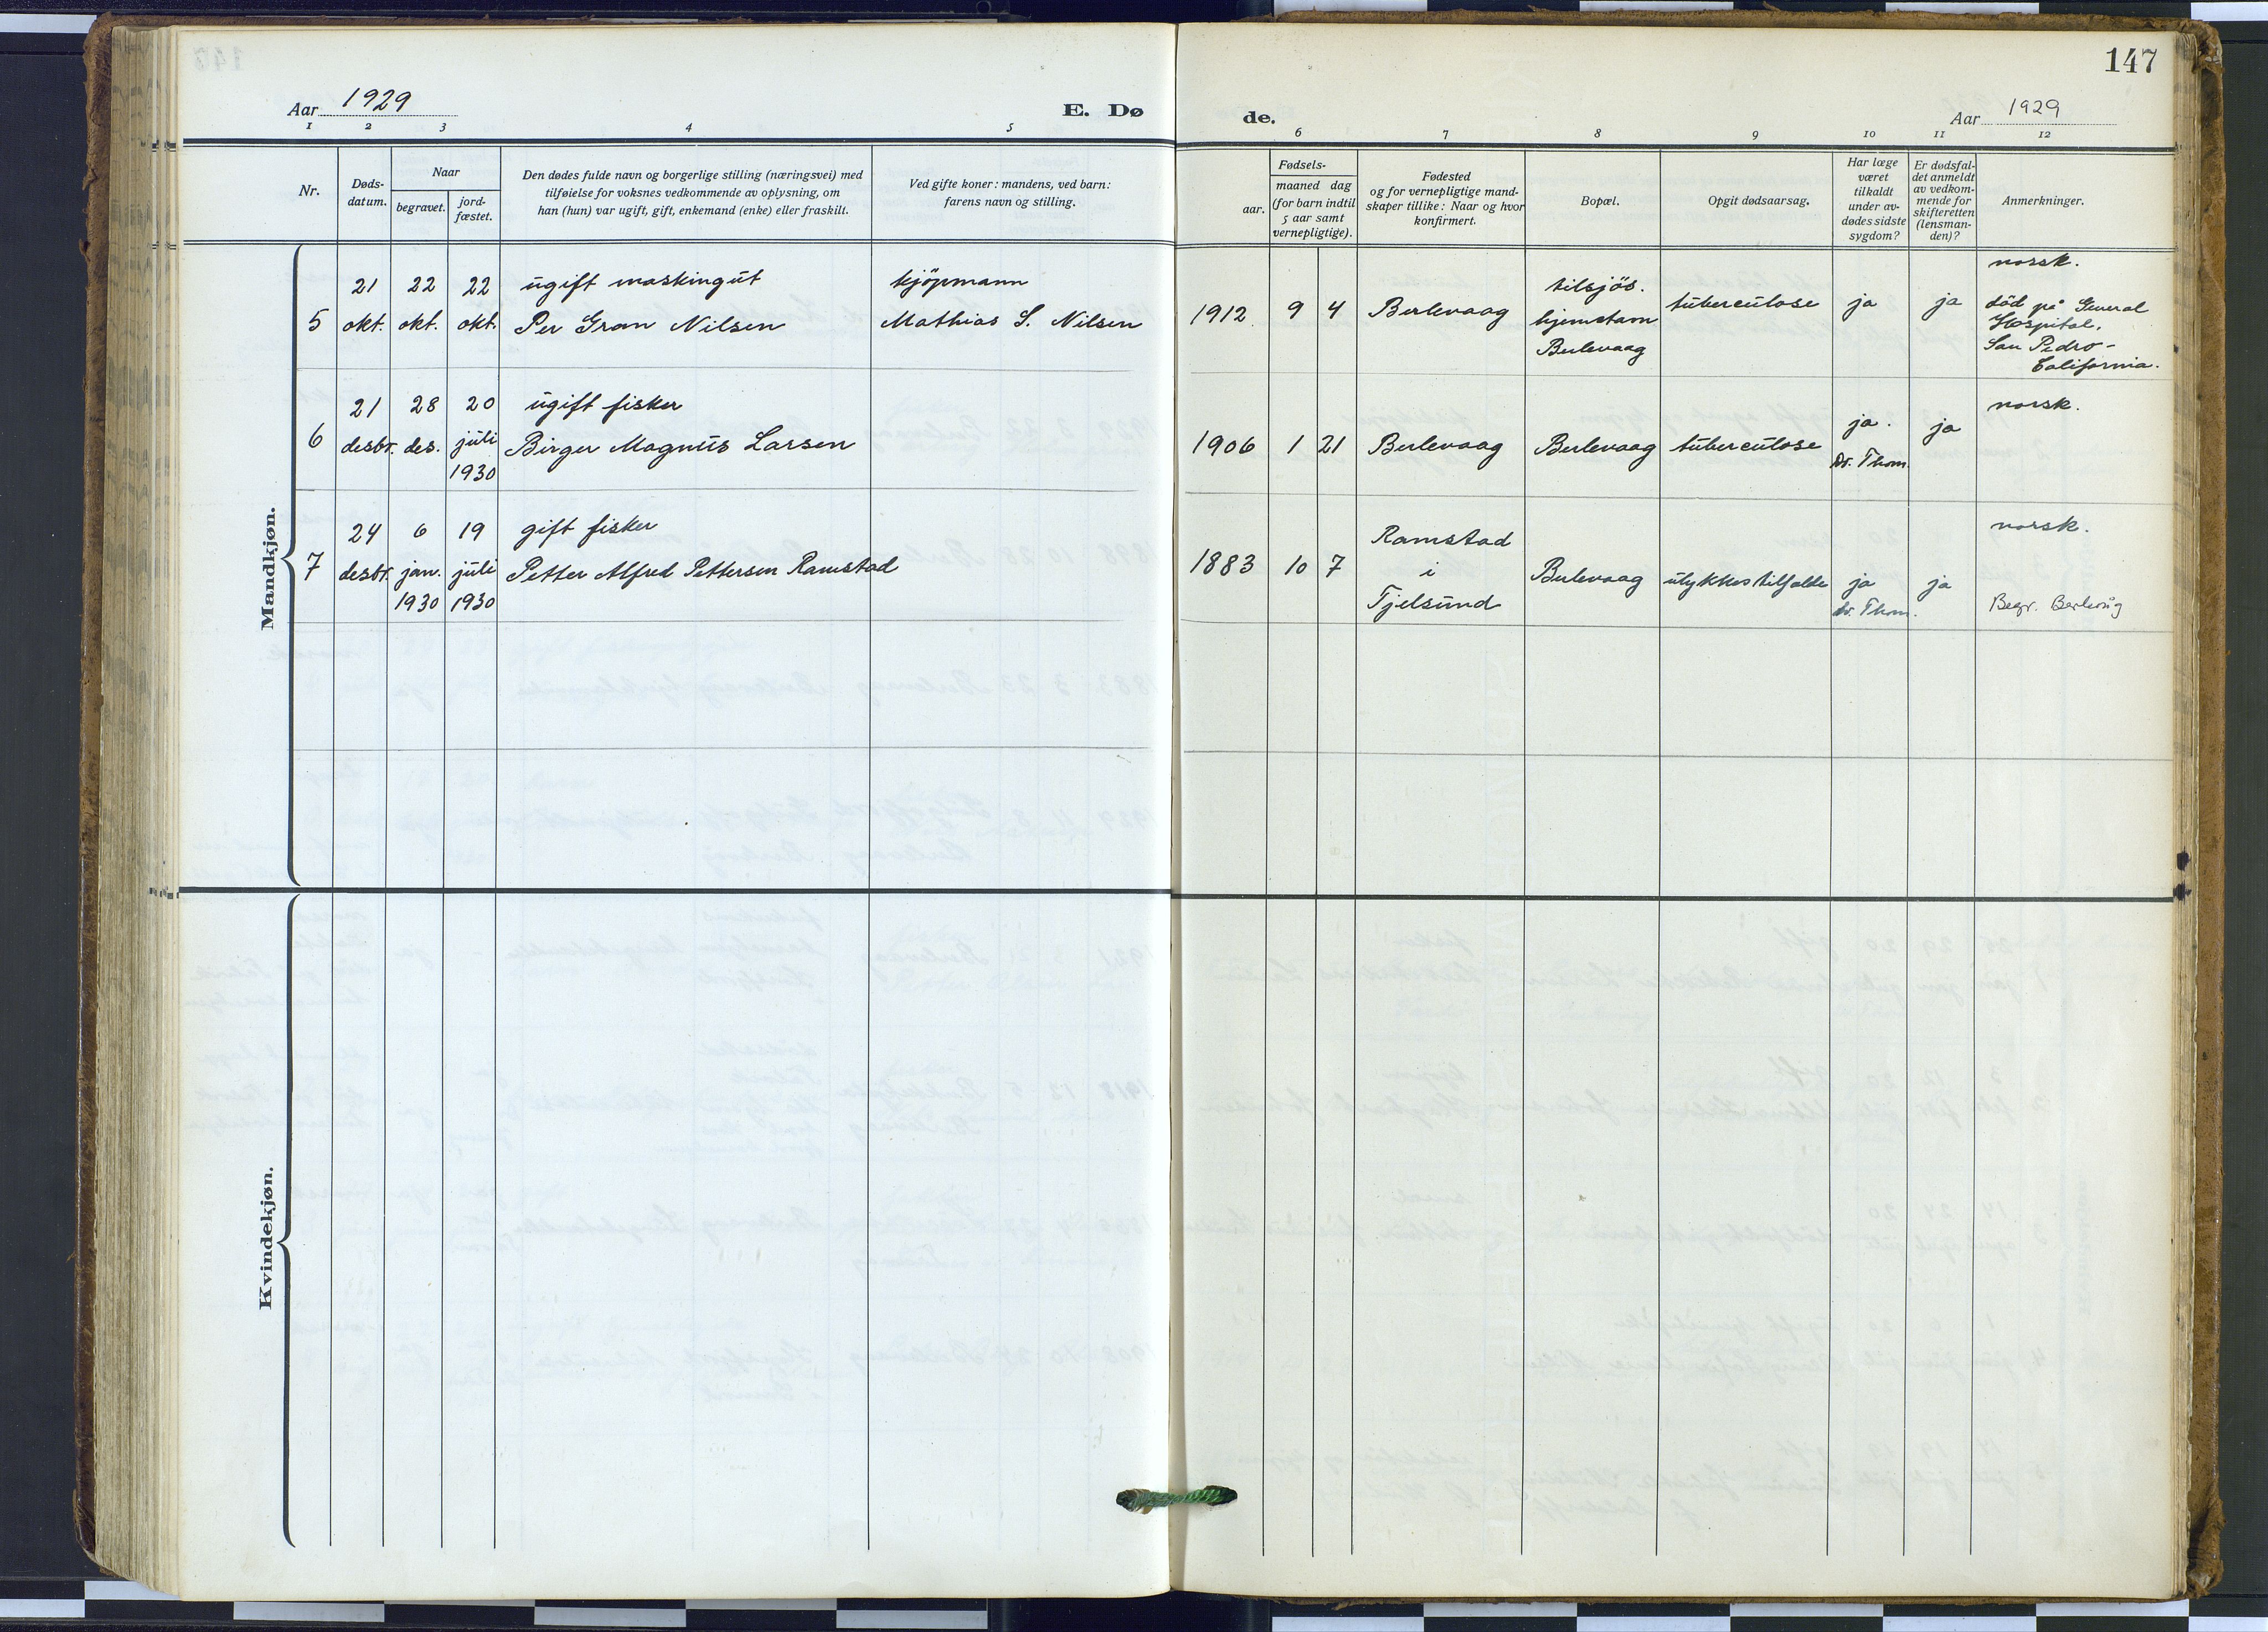 147
Aar 1929
E. Dø
de.
Aar 1929
1 2 3 4 5
6 7 8 9 10 11 12
Nr.
Døds-
datum.
Naar
begravet.
jord-
fæstet.
Den dødes fulde navn og borgerlige stilling (næringsvei) med
tilføielse for voksnes vedkommende av oplysning, om
han (hun) var ugift, gift, enkemand (enke) eller fraskilt.
Ved gifte koner: mandens, ved barn:
farens navn og stilling.
Fødsels-
aar.
maaned dag
(for barn indtil
5 aar samt
vernepligtige).
Fødested
og for vernepligtige mand-
skaper tillike: Naar og hvor
konfirmert.
Bopæl.
Opgit dødsaarsag.
Har læge
været
tilkaldt
under av-
dødes sidste
sygdom?
Er dødsfal-
det anmeldt
av vedkom-
mende for
skifteretten
(lensman-
den)?
Anmerkninger.
Mandkjøn.
5
21
okt.
22
okt.
22
okt.
ugift maskingut
Per Gran Nilsen
kjöpmann
Mathias S. Nilsen
1912
9
4
Berlevaag
tilsjös.
hjemstavn
Berlevaag
tuberculose
ja
ja
norsk.
död på General
Hospital,
San Pedro-
California.
6
21
desbr.
28
des.
20
juli
1930
ugift fisker
Birger Magnus Larsen
1906
1
21
Berlevaag
Berlevaag
tuberculose
ja.
dr. Thom.
ja
norsk.
7
24
desbr.
6
jan.
1930
19
juli
1930
gift fisker
Petter Alfred Pettersen Ramstad
1883
10
7
Ramstad
i
Tjelsund
Berlevaag
ulykkestilfelde
ja
dr. Thom.
ja
norsk.
Begr. Berlevåg
Kvindekjøn.